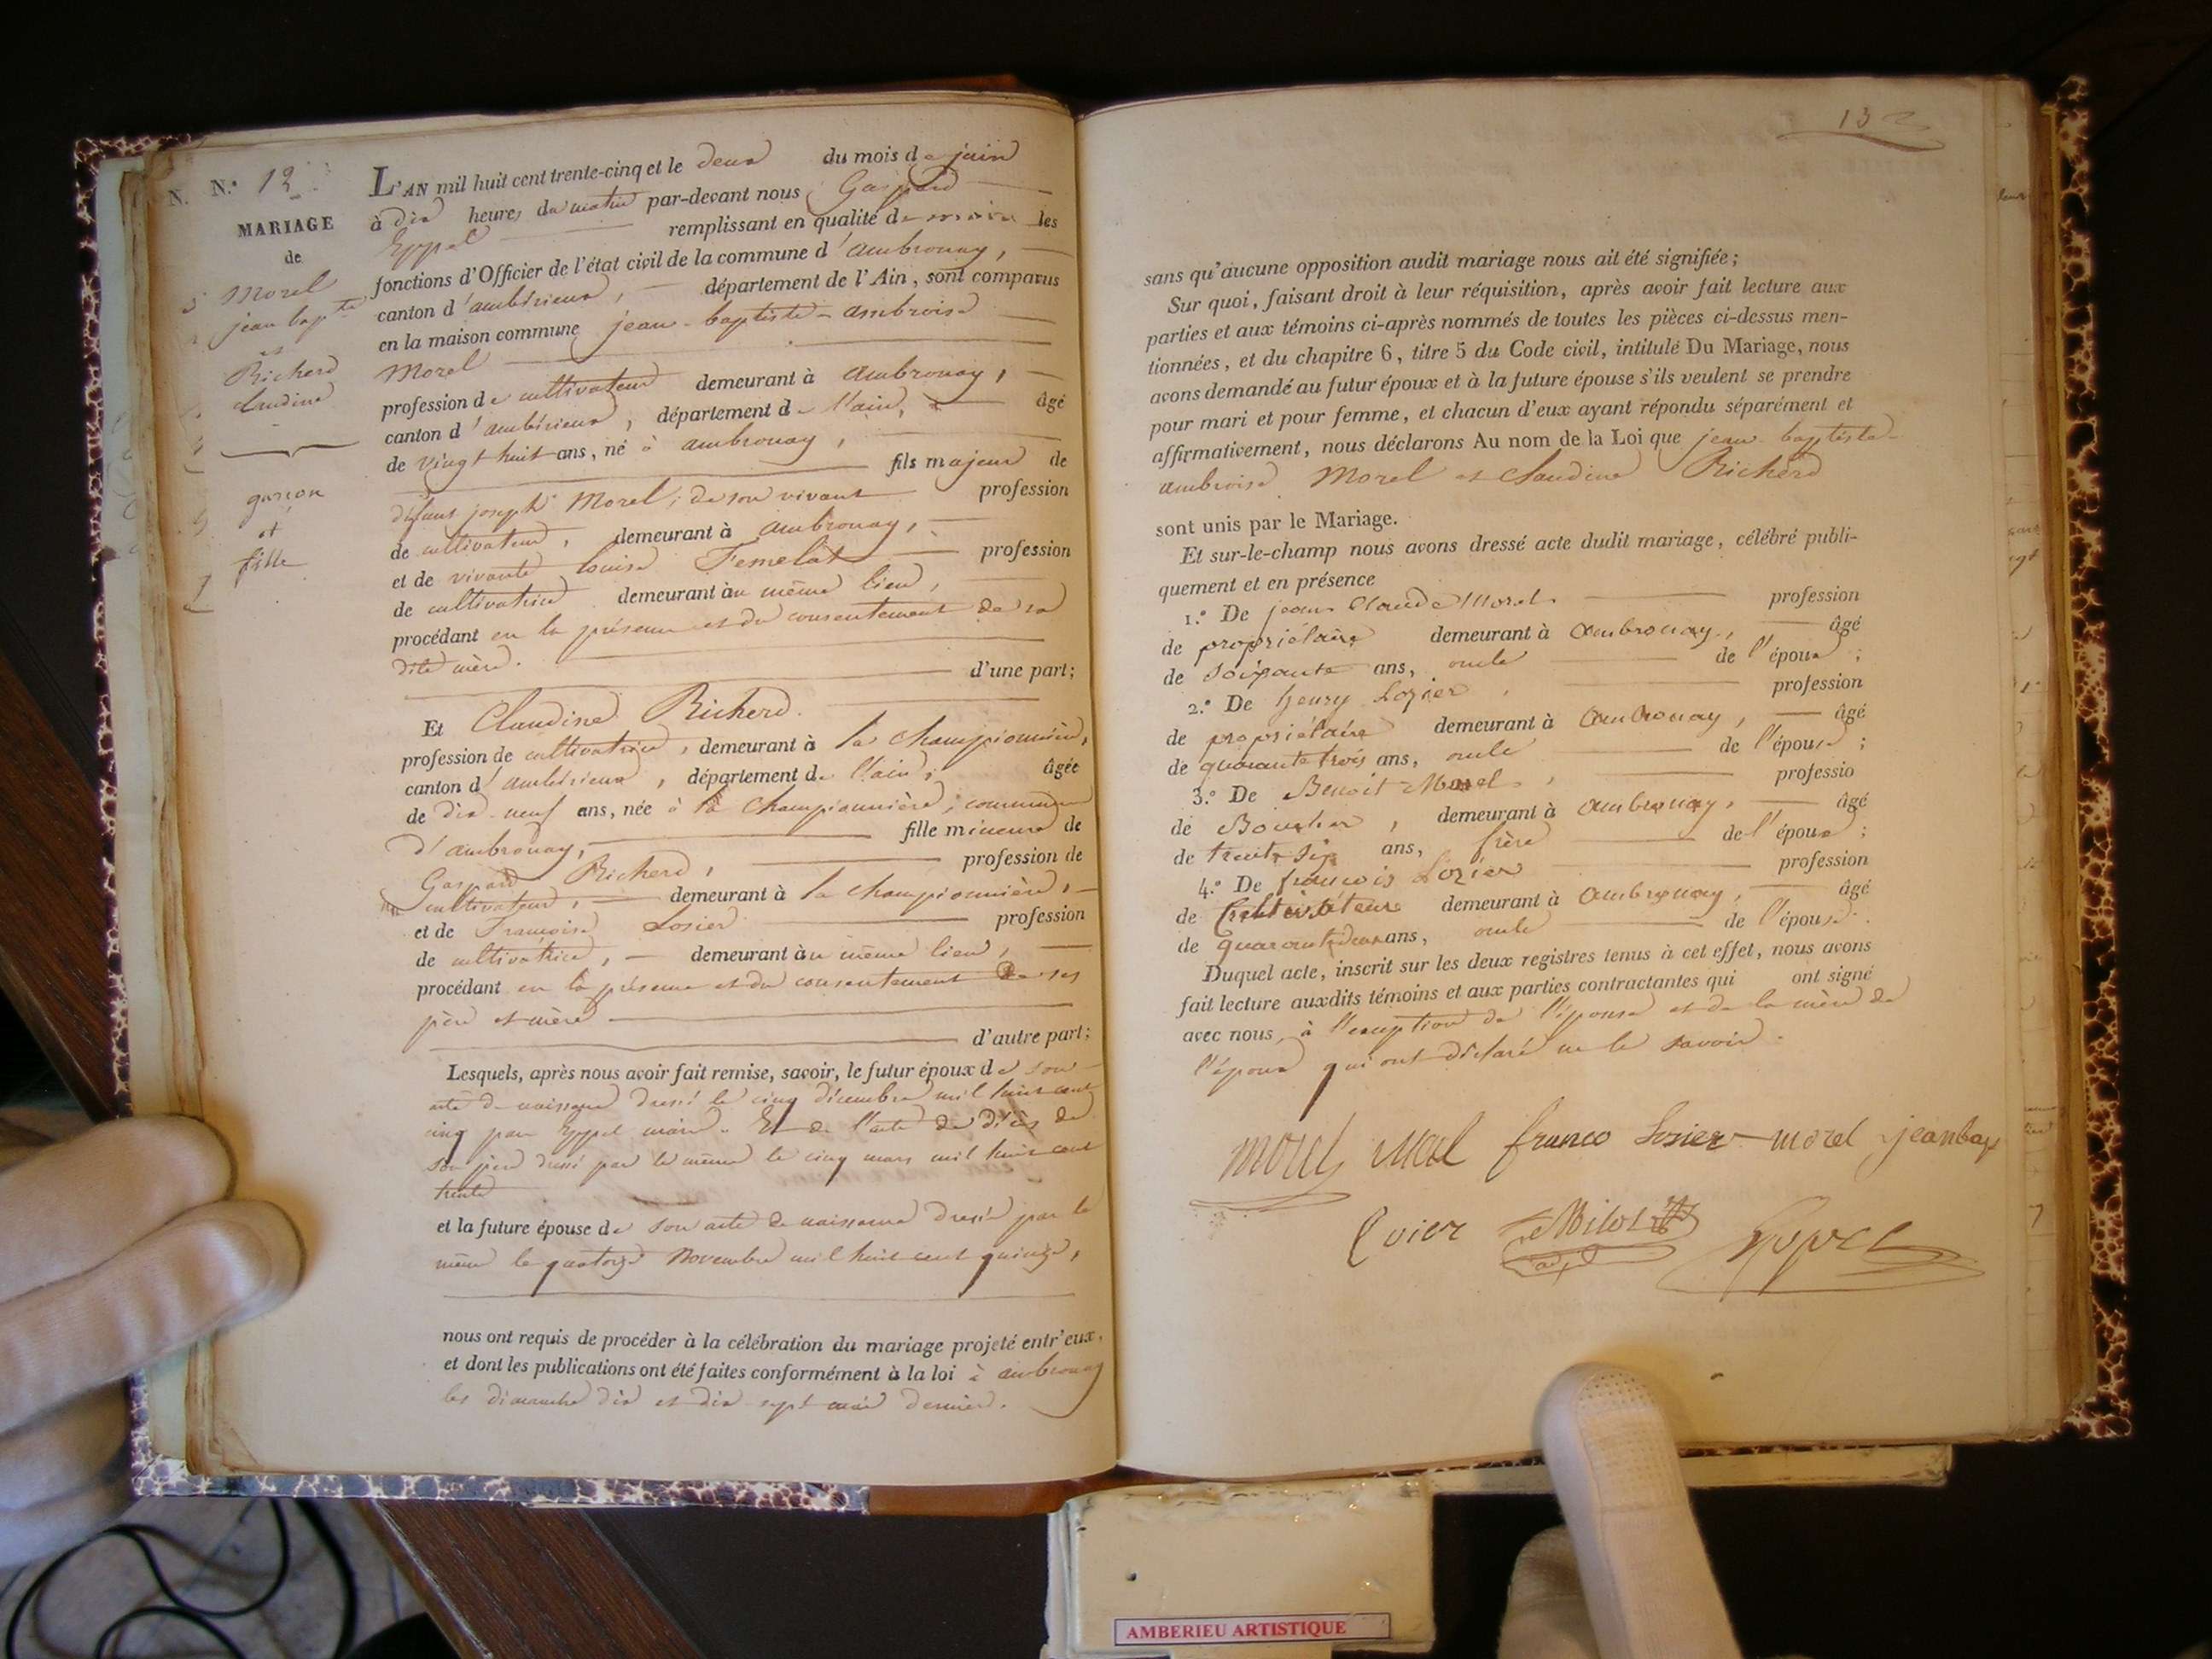 N. N.° 12
MARIAGE
de
Morel
jean bapte
et
Richerd
claudine
garçon
et
fille
L'AN mil huit cent trente-cinq et le deux du mois de juin
à dix heures du matin par-devant nous Gaspard
Eyppel remplissant en qualité de maire les
fonctions d'Officier de l'état civil de la commune d'ambronay,
canton d'ambérieux, département de l'Ain, sont comparus
en la maison commune jean-baptiste-ambroise
Morel
profession de cultivateur demeurant à ambronay,
canton d'ambérieux, département de l'ain, âgé
de vingt huit ans, né à ambronay,
fils majeur de
défunt joseph Morel, de son vivant profession
de cultivateur, demeurant à ambronay,
et de vivante Louise Femelat profession
de cultivatrice demeurant au même lieu,
procédant en la présence et du consentement de sa
dite mère.
d'une part;
Et Claudine Richerd.
profession de cultivatrice, demeurant à la championnière,
canton d'ambérieux, département de l'ain, âgée
de dix-neuf ans, née à la Championnière, commune
d'ambronay, fille mineure de
Gaspard Richerd, profession de
cultivateur, demeurant à la championnière,
et de Françoise Losier profession
de cultivatrice, demeurant au même lieu,
procédant en la présence et du consentement de ses
père et mère
d'autre part;
Lesquels, après nous avoir fait remise, savoir, le futur époux de son
acte de naissance dressé le cinq décembre mil huit cent
cinq par Eyppel maire. Et de l'acte de décès de
son père dressé par le même le cinq mars mil huit cent
trente
et la future épouse de son acte de naissance dressé par le
même le quatorze Novembre mil huit cent quinze,
nous ont requis de procéder à la célébration du mariage projeté entr'eux,
et dont les publications ont été faites conformément à la loi à ambronay
les dimanche dix et dix-sept mai dernier.
132
sans qu'aucune opposition audit mariage nous ait été signifiée;
Sur quoi, faisant droit à leur réquisition, après avoir fait lecture aux
parties et aux témoins ci-après nommés de toutes les pièces ci-dessus men-
tionnées, et du chapitre 6, titre 5 du Code civil, intitulé Du Mariage, nous
avons demandé au futur époux et à la future épouse s'ils veulent se prendre
pour mari et pour femme, et chacun d'eux ayant répondu séparément et
affirmativement, nous déclarons Au nom de la Loi que jean-baptiste-
ambroise Morel et Claudine Richerd
sont unis par le Mariage.
Et sur-le-champ nous avons dressé acte dudit mariage, célébré publi-
quement et en présence
1.° De jean Claude Morel profession
de propriétaire demeurant à ambronay, âgé
de soixante ans, oncle de l'époux;
2.° De henry Lozier, profession
de propriétaire demeurant à ambronay, âgé
de quarante trois ans, oncle de l'épouse;
3.° De Benoit Morel, professio
de Boucher, demeurant à ambronay, âgé
de trente six ans, frère de l'époux;
4.° De françois Lozier profession
de cultivateur demeurant à ambronay, âgé
de quarante deux ans, oncle de l'épouse.
Duquel acte, inscrit sur les deux registres tenus à cet effet, nous avons
fait lecture auxdits témoins et aux parties contractantes qui ont signé
avec nous, à l'exception de l'épouse et de la mère de
l'époux qui ont déclaré ne le savoir.
morel franco Losier morel jeanbap
AMBERIEU ARTISTIQUE